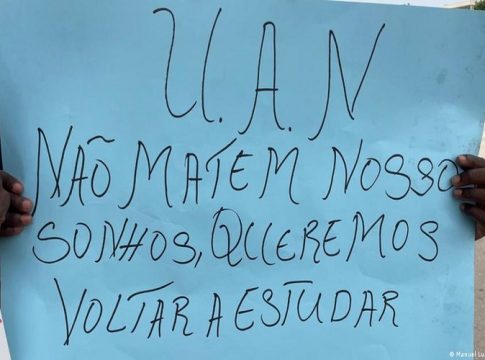 U.A.N
NÃO MATEM NOSSO
SONHOS, QUEREMOS
VOLTAR A ESTUDAR
© Manuel Lu